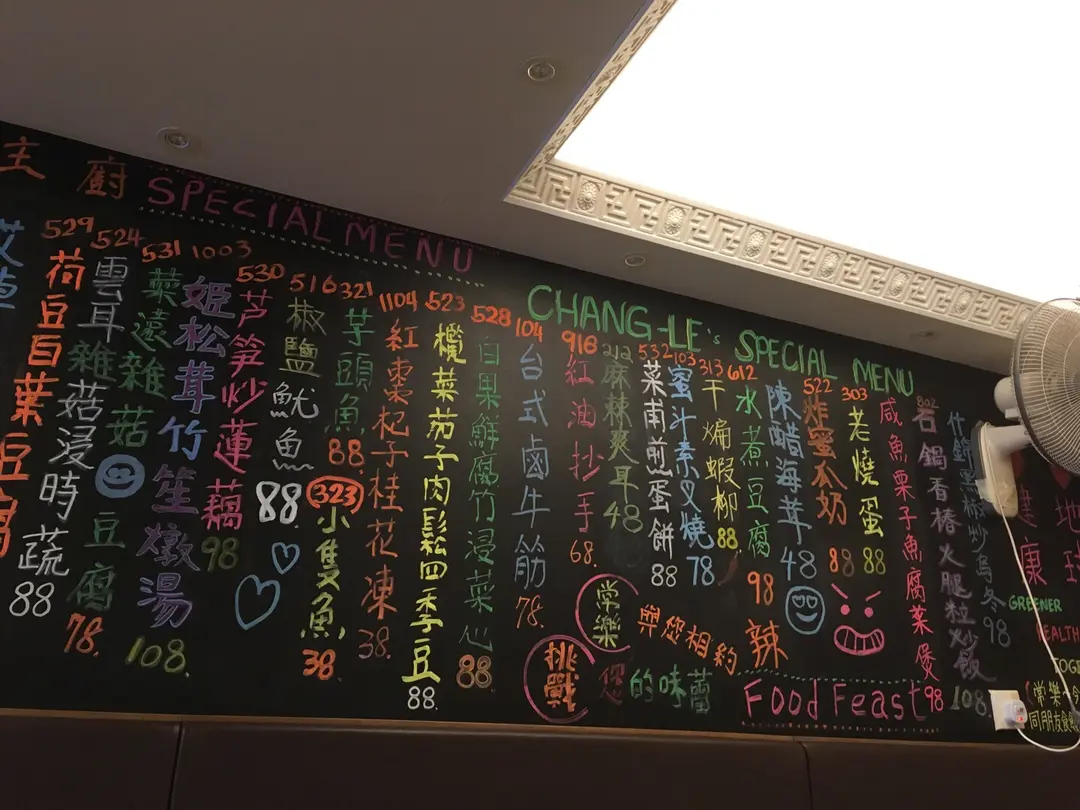 主廚 SPECIAL MENU
529 荷豆百葉豆腐
524 雲耳雜菇浸時蔬 88
531 菜遠雜菇豆腐 78.
1003 姬松茸竹笙燉湯 108.
530 芦笋炒蓮藕 98
516 椒鹽魷魚 88
321 芋頭魚 88
(323) 小隻魚 38.
1104 紅棗杞子桂花凍 38.
523 欖菜茄子肉鬆四季豆 88.
528 白果鮮腐竹浸菜心 88
CHANG-LE's SPECIAL MENU
104 台式鹵牛筋 78.
916 紅油抄手 68.
212 麻辣爽耳 48
532 菜甫煎蛋餅 88
103 蜜汁素叉燒 78
313 干煸蝦柳 88.
612 水煮豆腐 98
陳醋海茸 48
522 炸蜜瓜奶 88
303 老燒蛋 88
咸魚粟子魚腐菜煲 98
802 石鍋香椿火腿粒炒飯 108.
什錦黑椒炒烏冬 98
常樂 與您相約
挑 您的味蕾
辣
Food Feast
地
健康
GREENER
(常樂~今
同朋友食